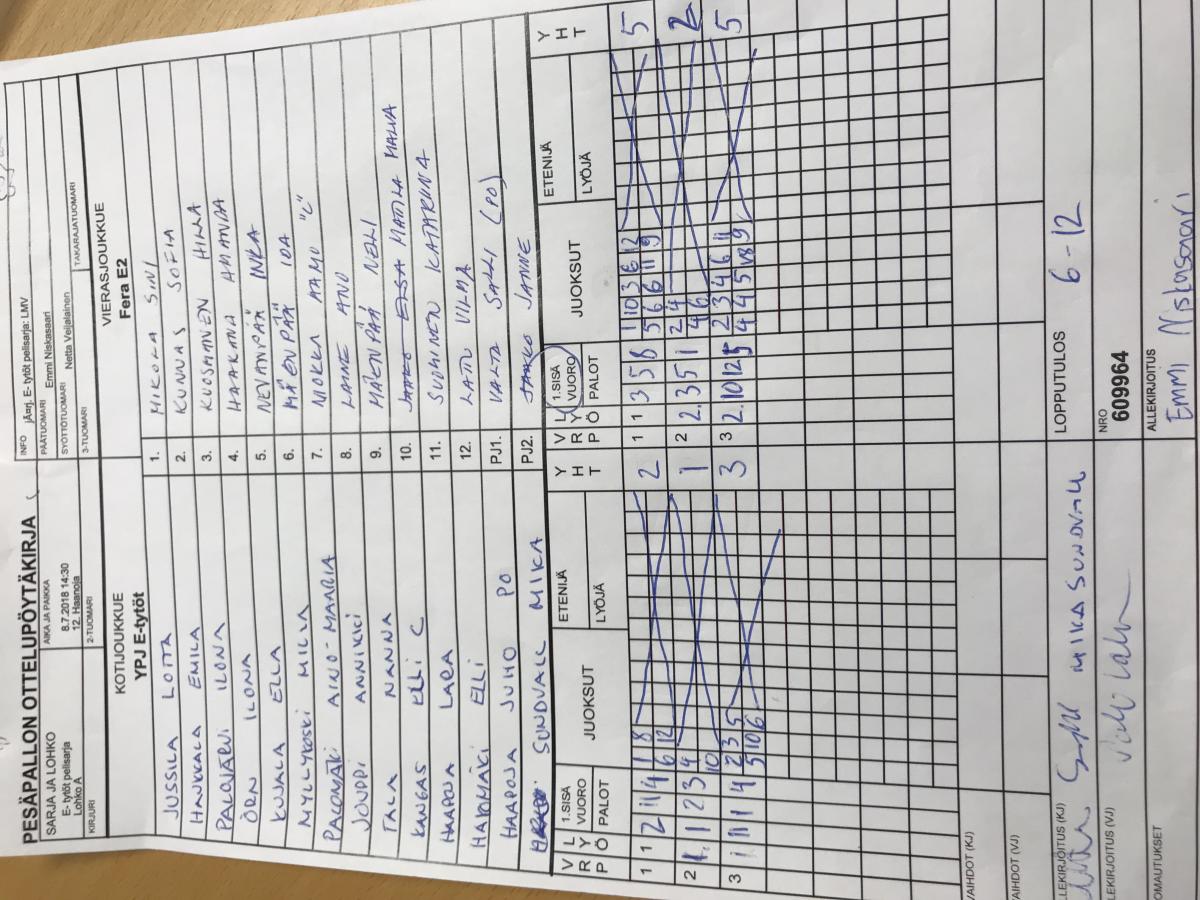 PESÄPALLON OTTELUPÖYTÄKIRJA
SARJA JA LOHKO
E- tytöt pelisarja
Lohko A
AIKA JA PAIKKA
8.7.2018 14:30
12. Haanoja
INFO jAarj. E- tytöt pelisarja: LMV
PÄÄTUOMARI Emmi Niskasaari
SYÖTTÖTUOMARI Netta Veijalainen
KIRJURI
2-TUOMARI
3-TUOMARI
TAKARAJATUOMARI
KOTIJOUKKUE
YPJ E-tytöt
VIERASJOUKKUE
Fera E2
JUSSILA LOTTA 1. MIKOLA SINI
HAUKKALA EMILIA 2. KUNNAS SOFIA
PALOJÄRVI ILONA 3. KUOSMANEN HILLA
ÖRN ILONA 4. HAAKANA AMANDA
KUJALA ELLA 5. NEVANPÄÄ INKA
MYLLYKOSKI MILLA 6. MÄENPÄÄ IDA
PALOMÄKI AINO-MAARIA 7. NIOKKA AAMU "C"
JOUPPI ANNIKKI 8. LAINE ANU
TALA NANNA 9. MÄKENPÄÄ NELLI
KANGAS ELLI C 10. MATILA MALVA
HAAPOJA LARA 11. SUOMINEN KATARIINA
HARJUMÄKI ELLI 12. LATU VILMA
HAAPOJA JUHO PO PJ1. VALTA SALLI (PO)
SUNDVALL MIKA PJ2. JAAKKO JANNE
V R P L Y Ö 1.SISÄ VUORO PALOT JUOKSUT ETENIJÄ LYÖJÄ Y H T
V R P L Y Ö 1.SISÄ VUORO PALOT JUOKSUT ETENIJÄ LYÖJÄ Y H T
1 1 2 11 4 1 8 2 1 1 3 5 8 1 10 3 6 12 5
6 12 5 6 6 11 9
2 1 2 3 4 1 2 2. 3 5 1 2 4 2
10 4 6
3 1 11 1 4 2 3 5 3 3 2. 10 12 5 2 3 4 6 11 5
5 10 6 4 4 5 1 8 9
VAIHDOT (KJ)
VAIHDOT (VJ)
ALLEKIRJOITUS (KJ) MIKA SUNDVALL
LOPPUTULOS 6-12
ALLEKIRJOITUS (VJ)
NRO 609964
HUOMAUTUKSET
ALLEKIRJOITUS
Emmi Niskasaari